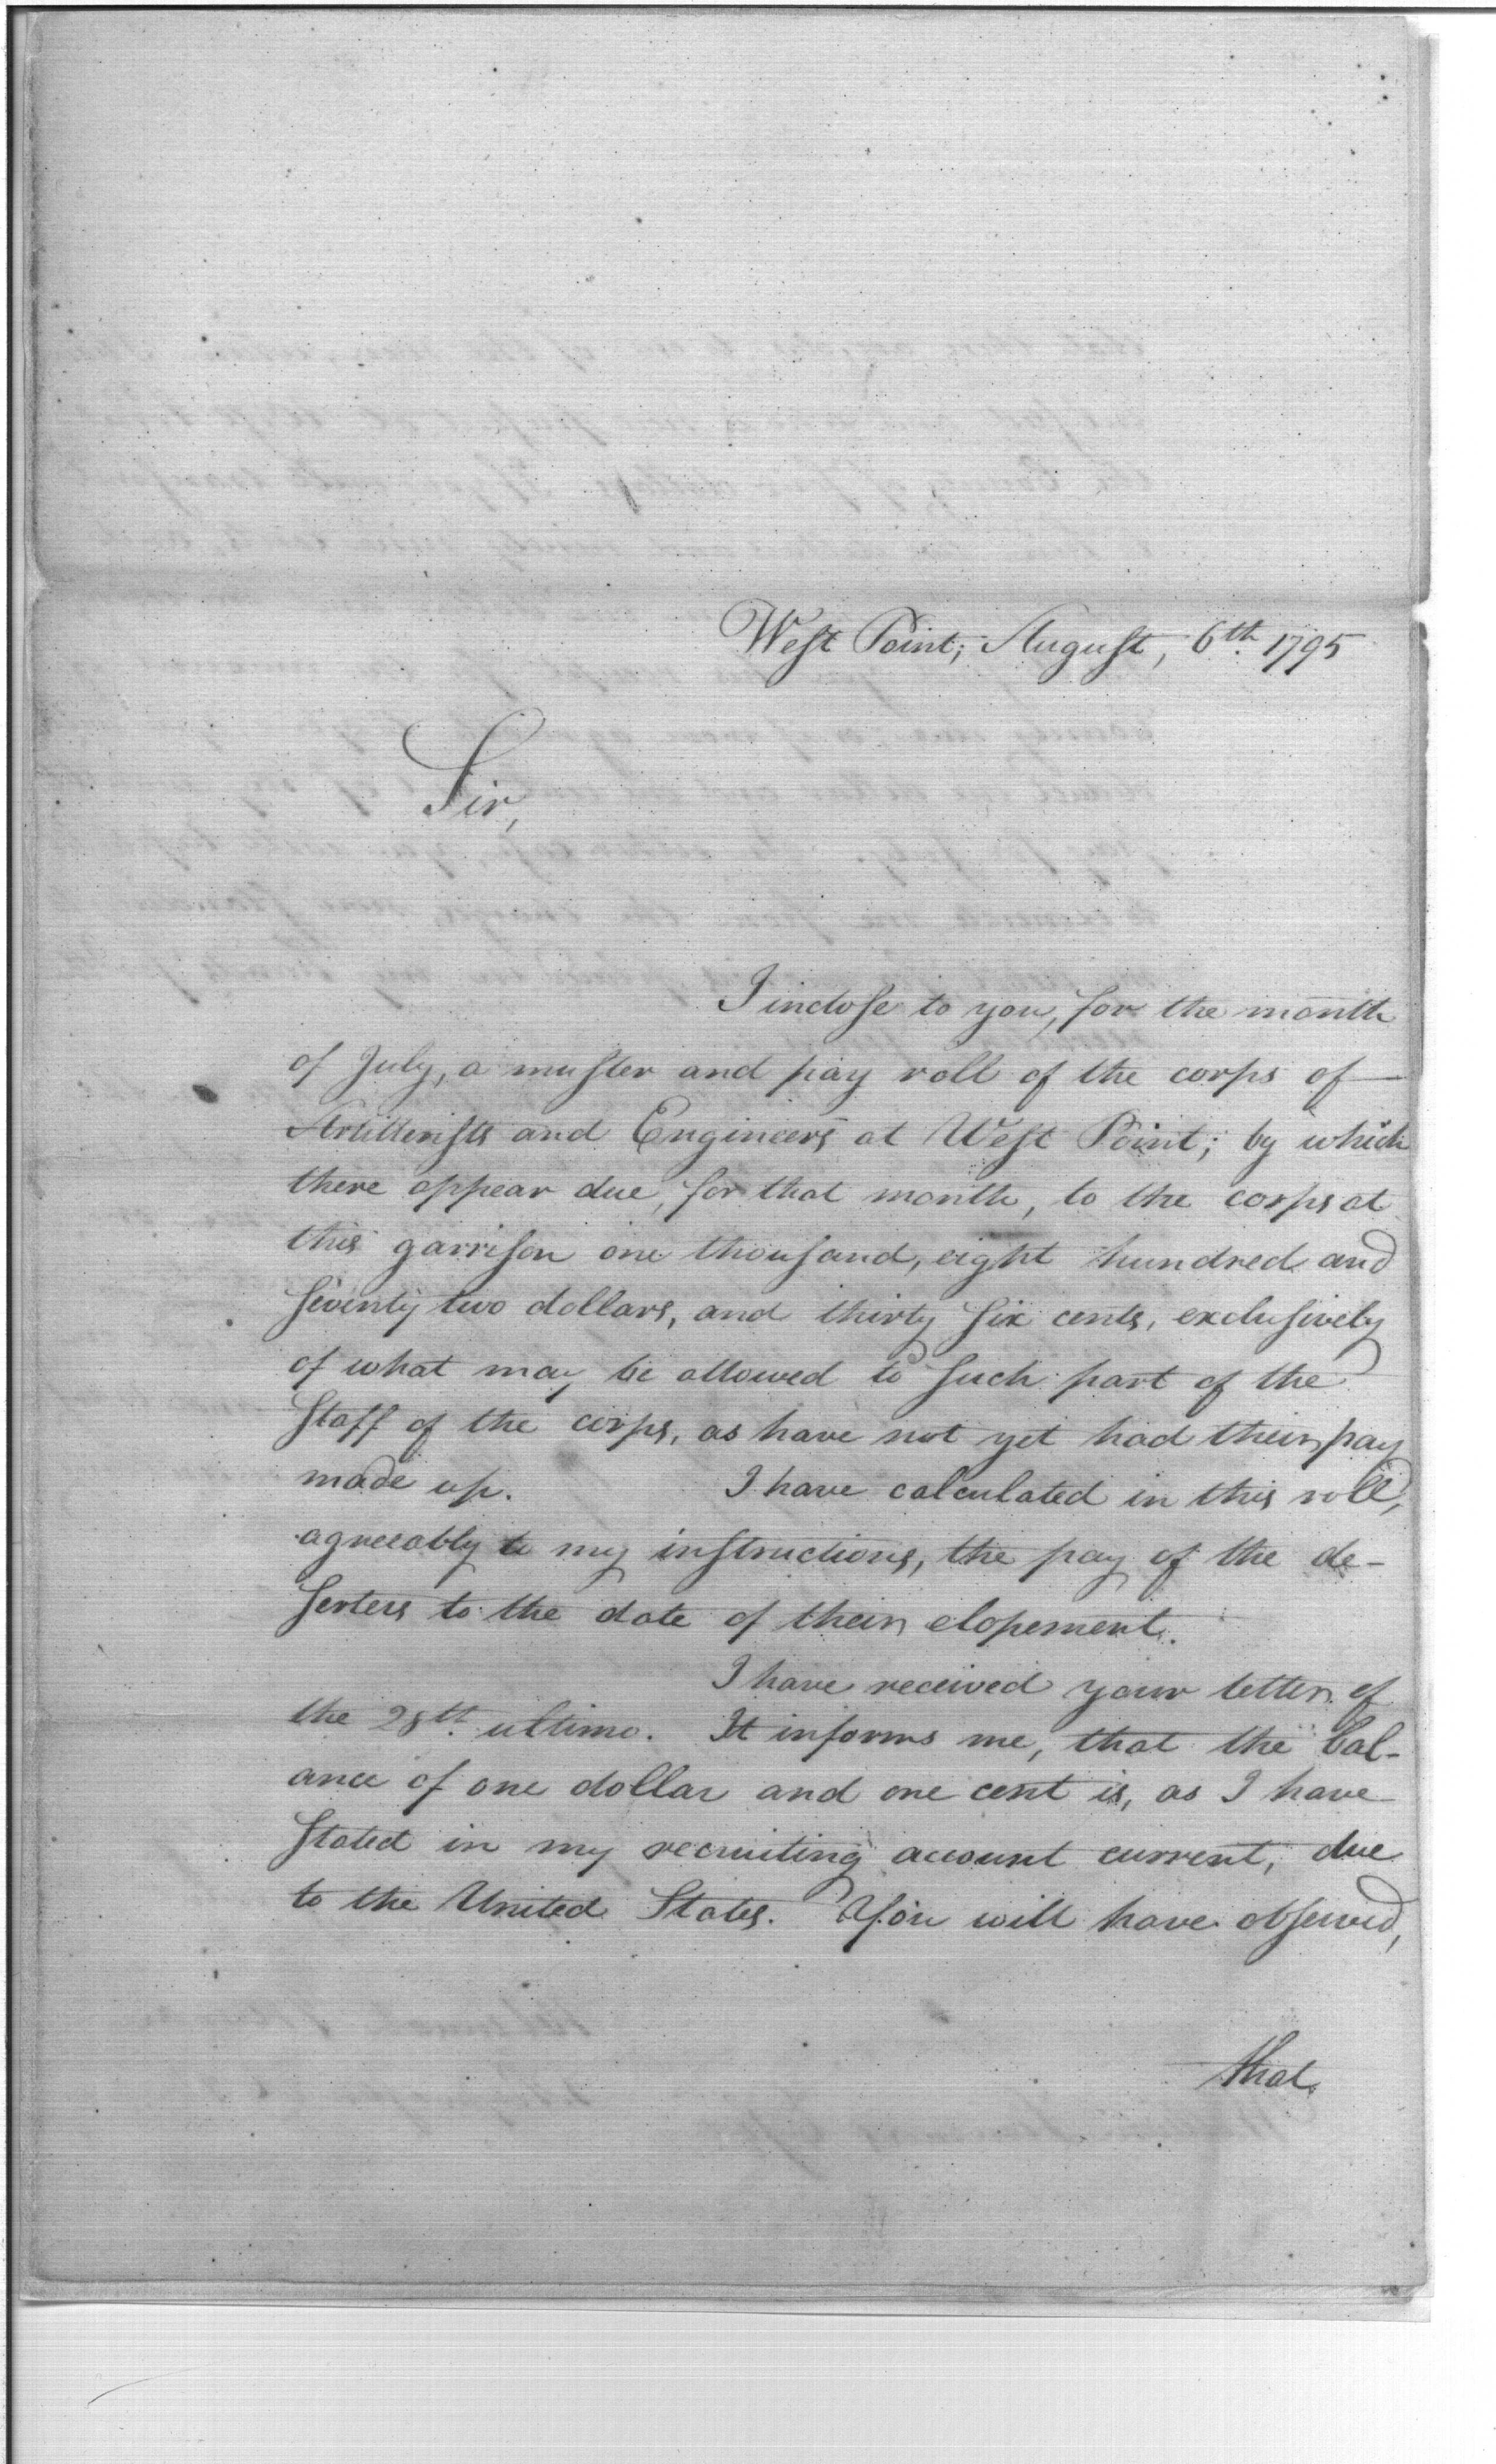 West Point; August, 6th. 1795
Sir,
I inclose to you, for the month
of July, a muster and pay roll of the corps of —
Artillerists and Engineers at West Point; by which
there appear due, for that month, to the corps at
this garrison one thousand, eight hundred and
seventy two dollars, and thirty six cents, exclusively
of what may be allowed to such part of the
staff of the corps, as have not yet had their pay
made up. I have calculated in this roll,
agreeably to my instructions, the pay of the de-
serters to the date of their elopement.
I have received your letter of
the 28th. ultimo. It informs me, that the bal-
ance of one dollar and one cent is, as I have
stated in my recruiting account current, due
to the United States. You will have observed,
that